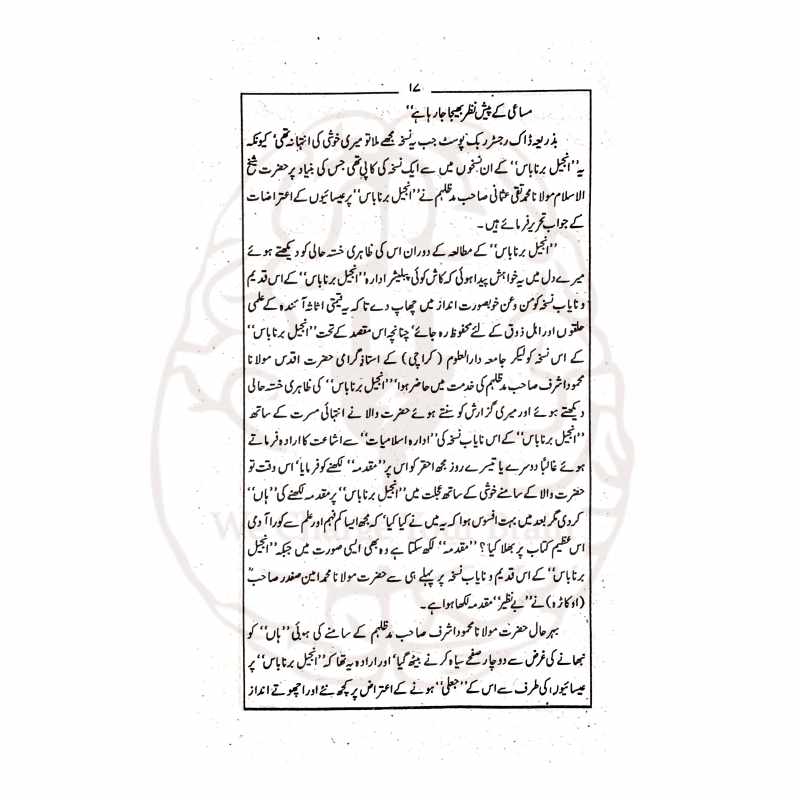 ۱۷
مساعی کے پیش نظر بھیجا جا رہا ہے‘‘
بذریعہ ڈاک رجسٹر بک پوسٹ جب یہ نسخہ مجھے ملا تو میری خوشی کی انتہا نہ تھی‘ کیونکہ
یہ ’’انجیل برناباس‘‘ کے ان نسخوں میں سے ایک نسخہ کی کاپی تھی جس کی بنیاد پر حضرت شیخ
الاسلام مولانا محمد تقی عثمانی صاحب مدظلہم نے ’’انجیل برناباس‘‘ پر عیسائیوں کے اعتراضات
کے جواب تحریر فرمائے ہیں۔
’’انجیل برناباس‘‘ کے مطالعہ کے دوران اس کی ظاہری خستہ حالی کو دیکھتے ہوئے
میرے دل میں یہ خواہش پیدا ہوئی کہ کاش کوئی پبلیشر ادارہ ’’انجیل برناباس‘‘ کے اس قدیم
و نایاب نسخہ کو من و عن خوبصورت انداز میں چھاپ دے تا کہ یہ قیمتی اثاثہ آئندہ کے علمی
حلقوں اور اہل ذوق کے لئے محفوظ رہ جائے‘ چنانچہ اس مقصد کے تحت ’’انجیل برناباس‘‘
کے اس نسخہ کو لیکر جامعہ دارالعلوم (کراچی) کے استاذ گرامی حضرت اقدس مولانا
محمود اشرف صاحب مدظلہم کی خدمت میں حاضر ہوا‘ ’’انجیل برناباس‘‘ کی ظاہری خستہ حالی
دیکھتے ہوئے اور میری گزارش کو سنتے ہوئے حضرت والا نے انتہائی مسرت کے ساتھ
’’انجیل برناباس‘‘ کے اس نایاب نسخہ کی ’’ادارہ اسلامیات‘‘ سے اشاعت کا ارادہ فرماتے
ہوئے غالباً دوسرے یا تیسرے روز مجھ احقر کو اس پر ’’مقدمہ‘‘ لکھنے کو فرمایا‘ اس وقت تو
حضرت والا کے سامنے خوشی کے ساتھ عجلت میں ’’انجیل برناباس‘‘ پر مقدمہ لکھنے کی ’’ہاں‘‘
کر دی مگر بعد میں بہت افسوس ہوا کہ یہ میں نے کیا کیا‘ کہ مجھ ایسا کم فہم اور علم سے کورا آدمی
اس عظیم کتاب پر بھلا کیا؟ ’’مقدمہ‘‘ لکھ سکتا ہے وہ بھی ایسی صورت میں جبکہ ’’انجیل
برناباس‘‘ کے اس قدیم و نایاب نسخہ پر پہلے ہی سے حضرت مولانا محمد امین صفدر صاحبؒ
(اوکاڑہ) نے ’’بے نظیر‘‘ مقدمہ لکھا ہوا ہے۔
بہر حال حضرت مولانا محمود اشرف صاحب مدظلہم کے سامنے کی ہوئی ’’ہاں‘‘ کو
نبھانے کی غرض سے دو چار صفحے سیاہ کرنے بیٹھ گیا‘ اور ارادہ یہ تھا کہ ’’انجیل برناباس‘‘ پر
عیسائیوں کی طرف سے اس کے ’’جعلی‘‘ ہونے کے اعتراض پر کچھ نئے اور اچھوتے انداز